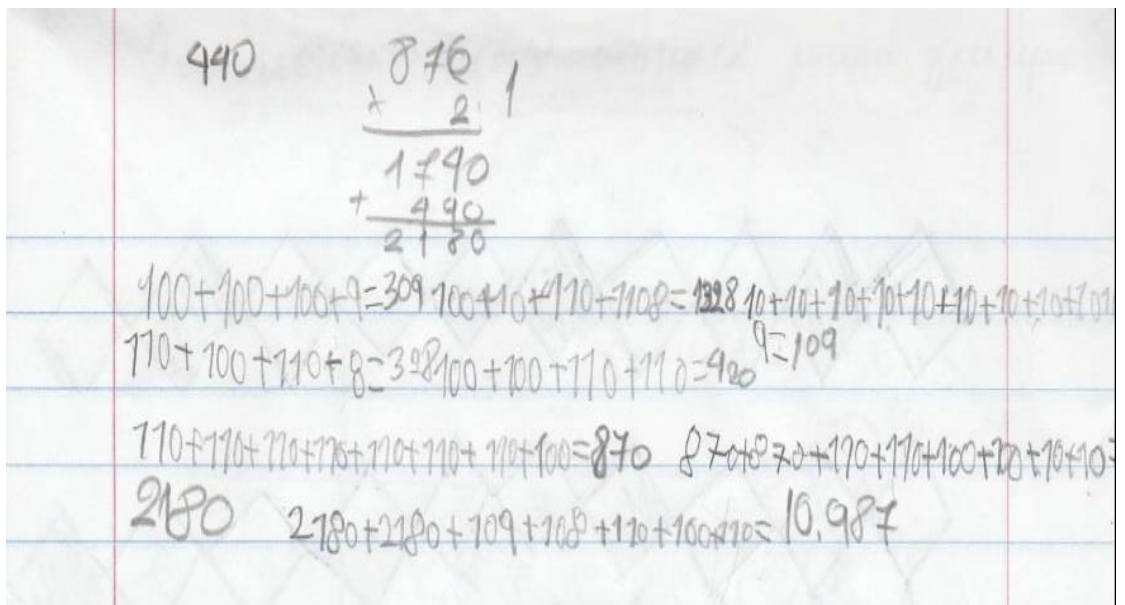 440 876
× 2 1
1740
+ 440
2180
100+100+100+9=309 100+10+110+1108=1328 10+10+10+10+10+10+10+10+10+
9=109
110+100+110+8=328 100+100+110+110=420
110+110+110+110+110+110+110+100=870 870+870+110+110+100+ +10+10=
2180 2180+2180+109+108+110+100+10=10.987